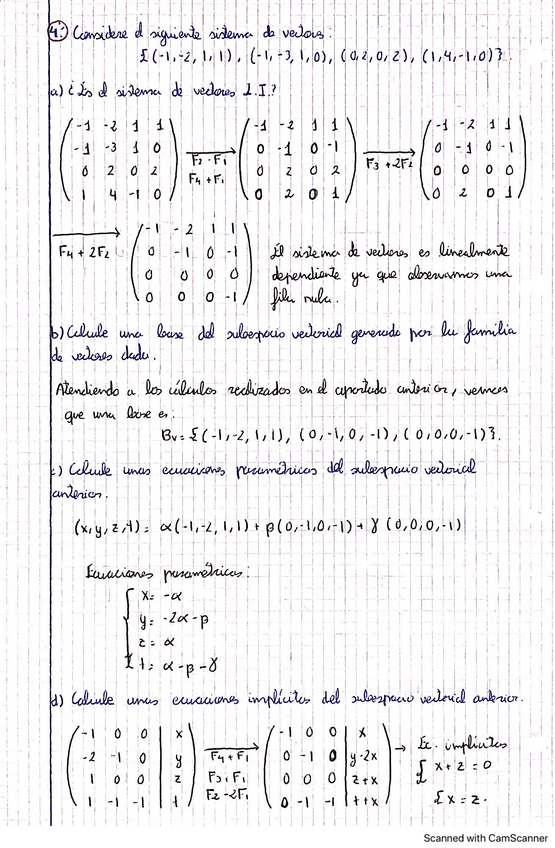 4. Considere el siguiente sistema de vectores:
{(-1,-2,1,1), (-1,-3,1,0), (0,2,0,2), (1,4,-1,0)}.
a) ¿Es el sistema de vectores L.I.?
-1 -2 1 1 -1 -2 1 1 -1 -2 1 1
-1 -3 1 0 F2-F1 0 -1 0 -1 F3+2F2 0 -1 0 -1
0 2 0 2 F4+F1 0 2 0 2 0 0 0 0
1 4 -1 0 0 2 0 1 0 2 0 1
-1 -2 1 1
F4+2F2 0 -1 0 -1 El sistema de vectores es linealmente
0 0 0 0 dependiente ya que observamos una
0 0 0 -1 fila nula.
b) Calcule una base del subespacio vectorial generado por la familia
de vectores dada.
Atendiendo a los cálculos realizados en el apartado anterior, vemos
que una base es:
Bv={(-1,-2,1,1), (0,-1,0,-1), (0,0,0,-1)}.
c) Calcule unas ecuaciones paramétricas del subespacio vectorial
anterior.
(x,y,z,t)= α(-1,-2,1,1)+β(0,-1,0,-1)+γ(0,0,0,-1)
Ecuaciones paramétricas:
x= -α
y= -2α-β
z= α
t= α-β-γ
d) Calcule unas ecuaciones implícitas del subespacio vectorial anterior.
-1 0 0 | x -1 0 0 | x
-2 -1 0 | y F4+F1 0 -1 0 | y-2x → Ec. implícitas
1 0 0 | z F3+F1 0 0 0 | z+x { x+z=0
1 -1 -1 | t F2-2F1 0 -1 -1 | t+x { x=z.
Scanned with CamScanner